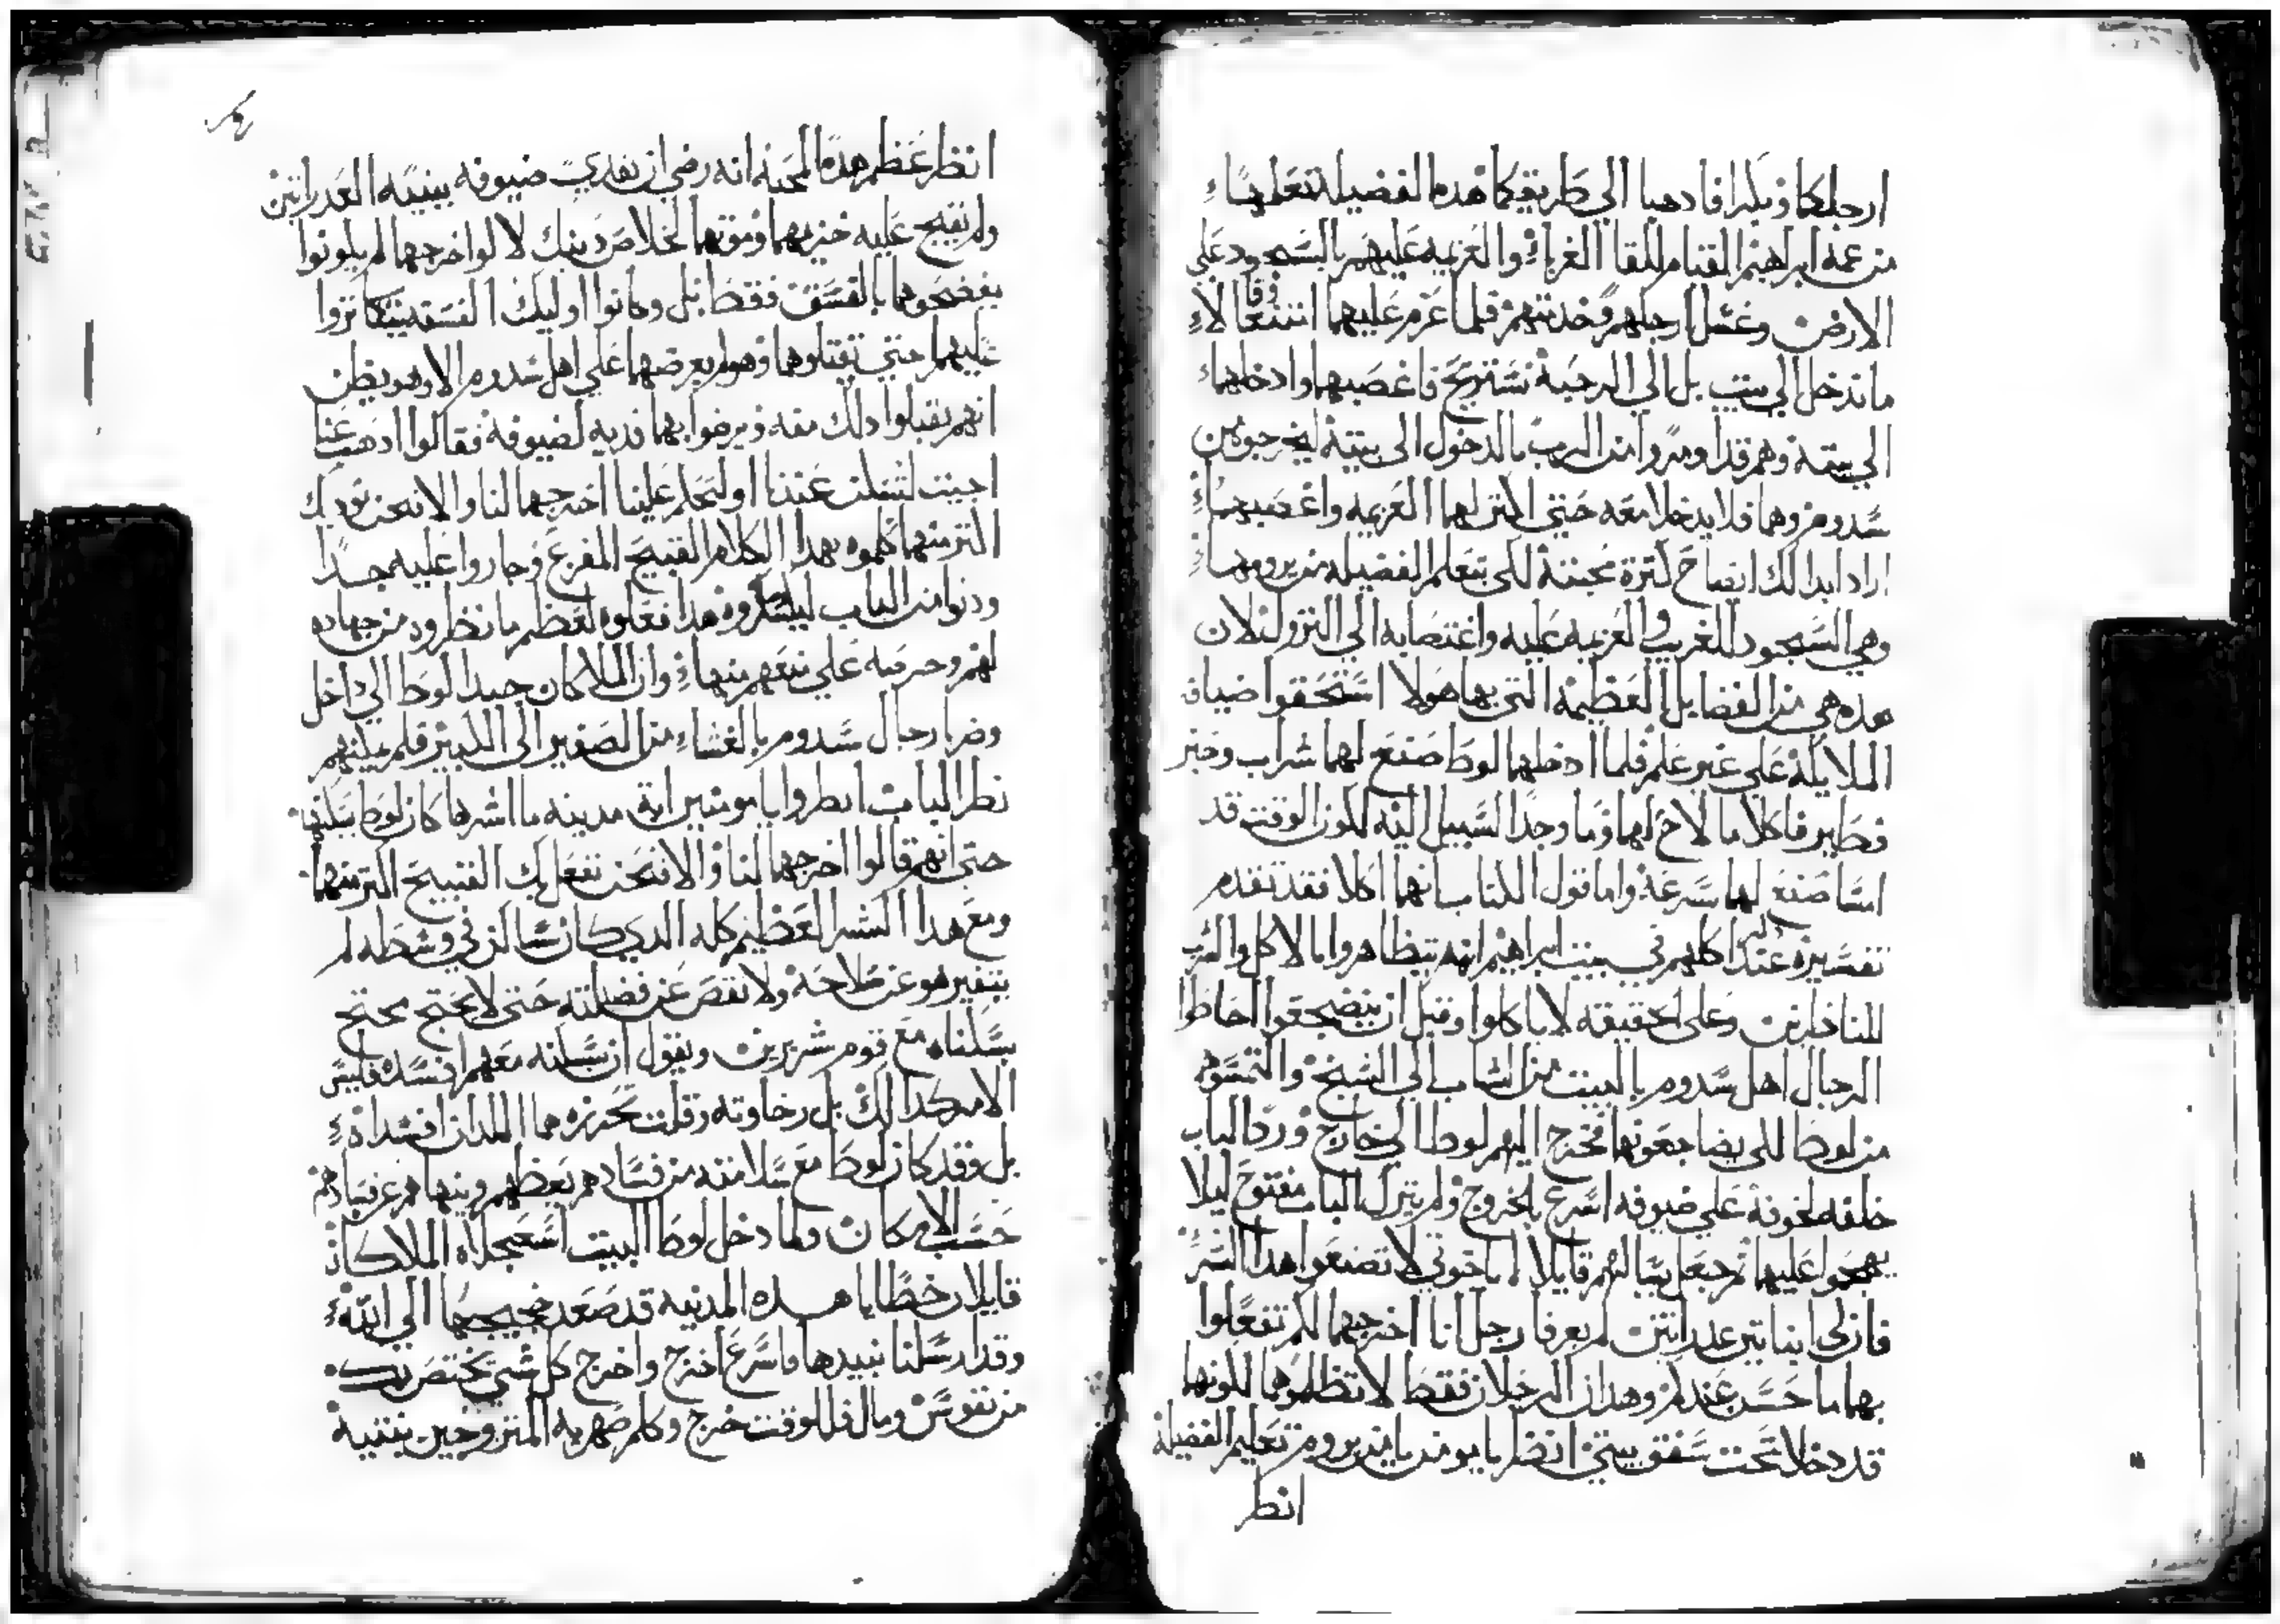 ارجلكما وبكرا فادهبا الي طريقكما هده الفضيله تعلمها
من عمه ابراهيم القيام للقا الغربا والعزيمه عليهم بالسجود علي
الارض وغسل ارجلهم وخدمتهم فلما عزم عليهما انتفعا لا
ما ندخل الي بيت بل الي الرحبة نستريح فاغصبهما وادخلهما
الي بيته وهم قد اومروا من الرب بالدخول الي بيته ليخرجوه من
سدوم وهما فلا يدخلا معه حتي اكتر لهما العزيمه واغصبهما
اراد ابدالك ايضاح كترة محبته لكي يتعلم الفضيله من يرومها
وهي السجود للغريب والعزيمه عليه واغتصابه الي النزول لان
هده هي من الفضايل العظيمه التي بها هولا استحقوا ضيافة
الملايكة علي غير علم فلما ادخلهما لوط صنع لهما شراب وخبز
وفطير فاكلا ما لاح لهما وما وجدا السبيل اليه لكون الوقت قد
امسا صنع لهما سرعة واما قول الكتاب انهما اكلا فقد تقدم
تفسيره عند دكر اكلهم في بيت ابراهيم انهم تظاهروا بالاكل والشرب
للناظرين وعلي الحقيقه لا ياكلوا وقبل ان ينضجعوا احاطوا
الرجال اهل سدوم بالبيت من الشاب الي الشيخ والتمسوهم
من لوط لكي يضاجعونهما فخرج اليهم لوط الي خارج ورد الباب
خلفه لخوفه علي ضيوفه اسرع بالخروج ولم يترك الباب مفتوح ليلا
يهجموا عليهما ثم جعل يسالهم قايلا لا ياخوتي لا تصنعوا هدا الشر
فان لي ابنتين عدراتين لم يعرفا رجل انا اخرجهما لكم تفعلوا
بهما ما حسن عندكم وهدان الرجلان فقط لا تظلموهما لكونهما
قد دخلا تحت سقف بيتي انظر يا مومن يا من يروم تعليم الفضيلة
انظر
انظر عظم هده المحبه انه رضي ان يفدي ضيوفه ببنيته العدراتين
ولم يقبح عليه خزيهما وموتهما لخلاص دينك لا لو اخرجهما لم يكونوا
يفضحوهما بالفسق فقط بل وكانوا اوليك الفسقه يتكاتروا
عليهما حتي يقتلوهما وهو لم يعرضهما علي اهل سدوم الا وهو يظن
انهم يقبلوا دلك منه ويرضوا بهما فديه لضيوفه فقالوا ادهب عنا
اجيت لتسكن عندنا او لتحكم علينا اخرجهما لنا والا نحن نوديك
اكتر منهما كلموه بهدا الكلام القبيح المفزع وجاروا عليه جدا
ودنوا من الباب ليكسروه هدا فعلوه لعظم ما نظروه من جهاده
لهم وحرصه علي منعهم منهما وان الملاكان جبدا لوط الي داخل
وضربا رجال سدوم بالغشاء من الصغير الي الكبير فلم يمكنهم
نظر الباب انظروا يا مومنين اية مدينه ما اشرها كان لوط يسكنها
حتي انهم قالوا اخرجهما لنا والا نحن نفعل بك القبيح اكتر منهما
ومع هدا الشر العظيم كله الدي كان ساكن في وسطه لم
يتغير هو عن صلاحه ولا نقص عن فضيلته حتي لا يحتج محتج
بسكناه مع قوم شريرين ويقول ان سكنه معهم افسده فليس
الامر كدالك بل رخاوته وقلت تحرزه هما اللدان افسداه
بل وقد كان لوط مع سلامته من فسادهم يعظهم وينهاهم عن فسادهم
حسب الامكان ولما دخل لوط البيت استعجلاه الملاكان
قايلان خطايا هده المدينه قد صعد ضجيجها الي الله
وقد ارسلنا نبيدها فاسرع اخرج واخرج كل شي يختص بك
من نفوس ومال فللوقت خرج وكلم صهريه المتزوجين ببنتيه